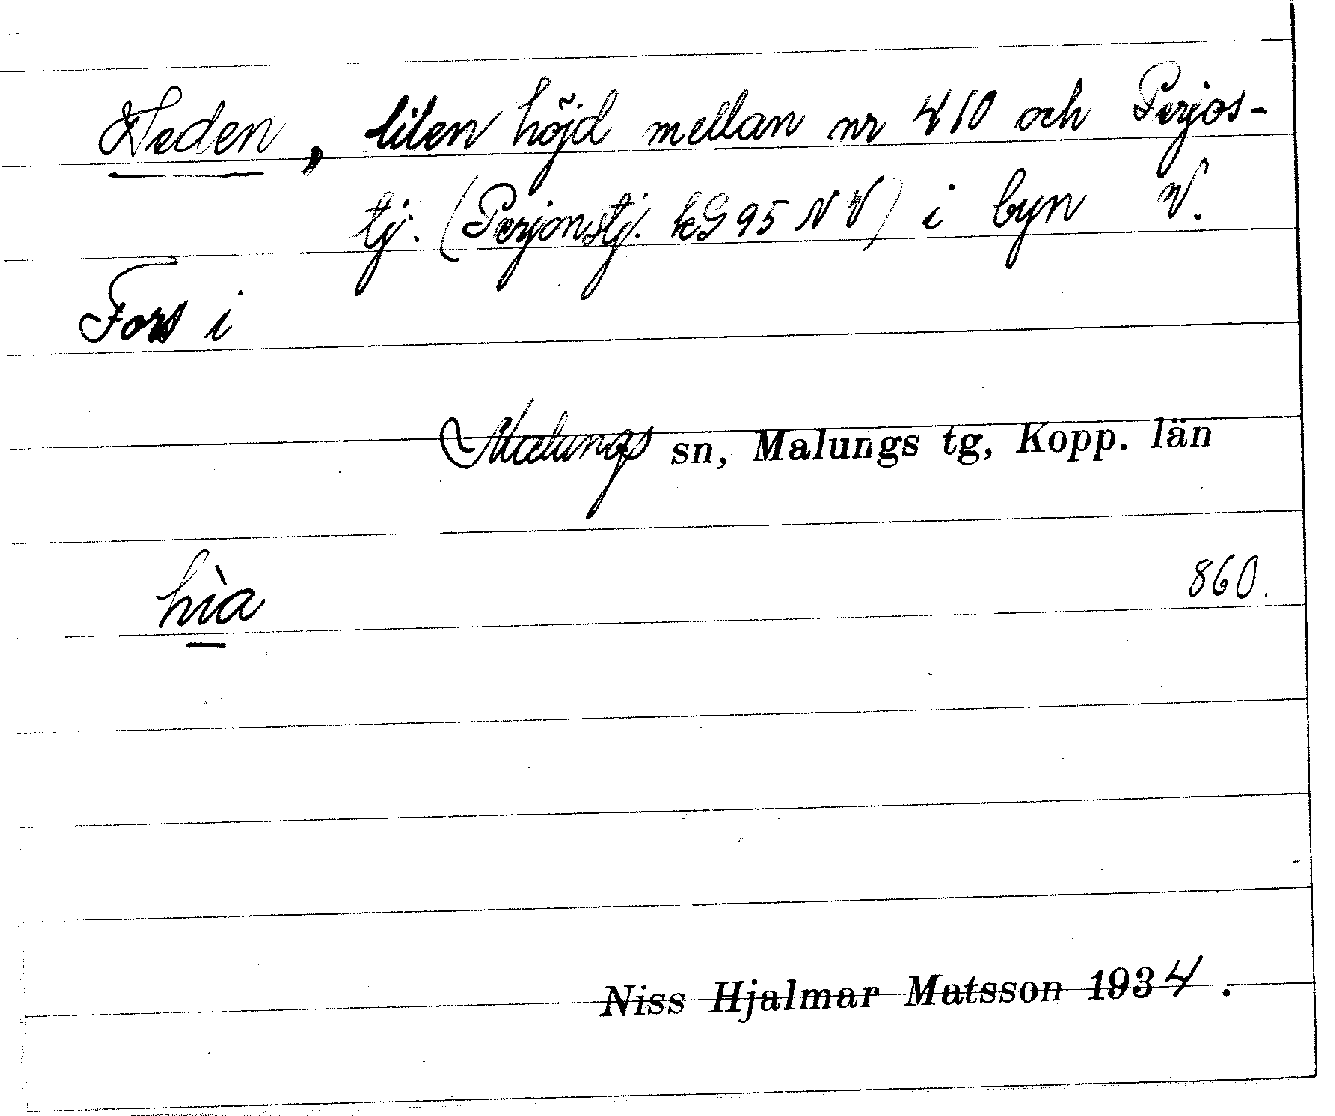 Heden, liten höjd mellan nr 410 och Perjos-
tj. (Perjonstj. kG 95 NV) i byn V.
Fors i
Malungs sn, Malungs tg, Kopp. län
hìa 860.
Niss Hjalmar Matsson 1934.